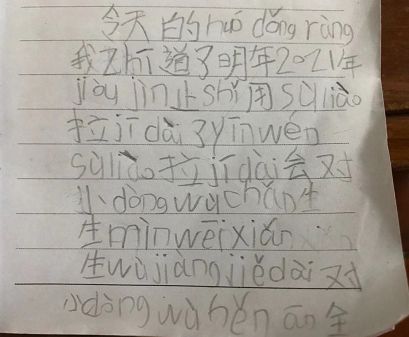 今天的huó dǒng ràng
我zhī道了明年2021年
jiòu jìn止shǐ用sùliào
拉jī dài了yīnwén
sùliào拉jī dài会对
小dòngwùchǎn生
生mìnwēixiǎn
生wùjiàngjiědài对
小dòngwùhěn ān全